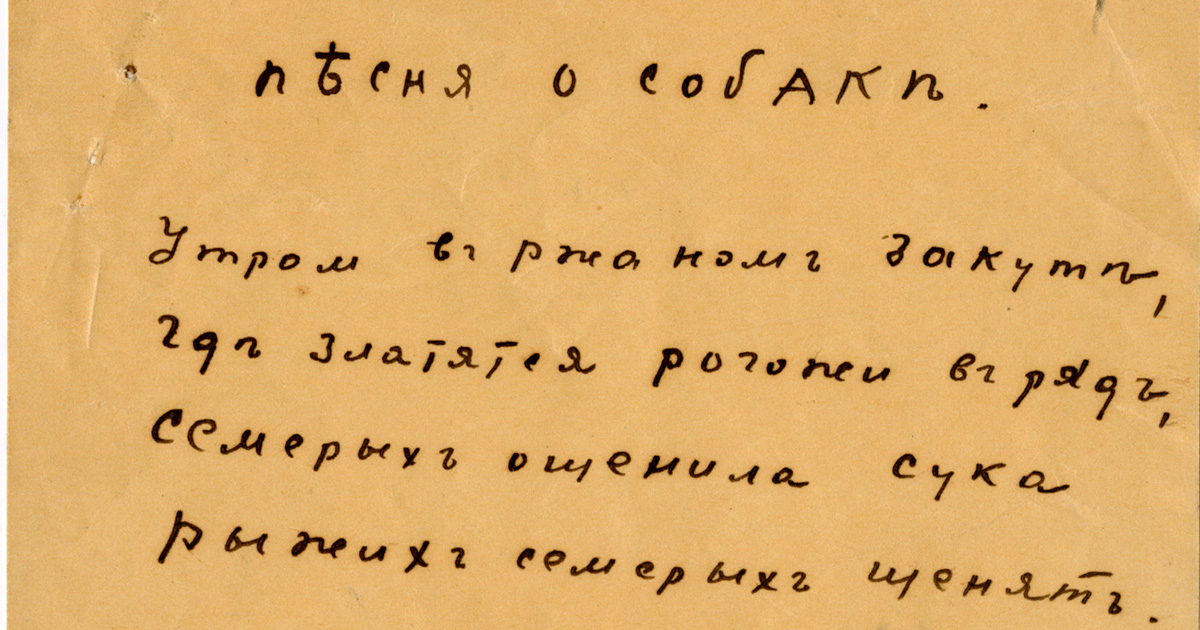 пѣсня о собакѣ.
Утром въ ржаномъ закутѣ,
гдѣ златятся рогожи въ рядъ,
семерыхъ ощенила сука
рыжихъ семерыхъ щенятъ.